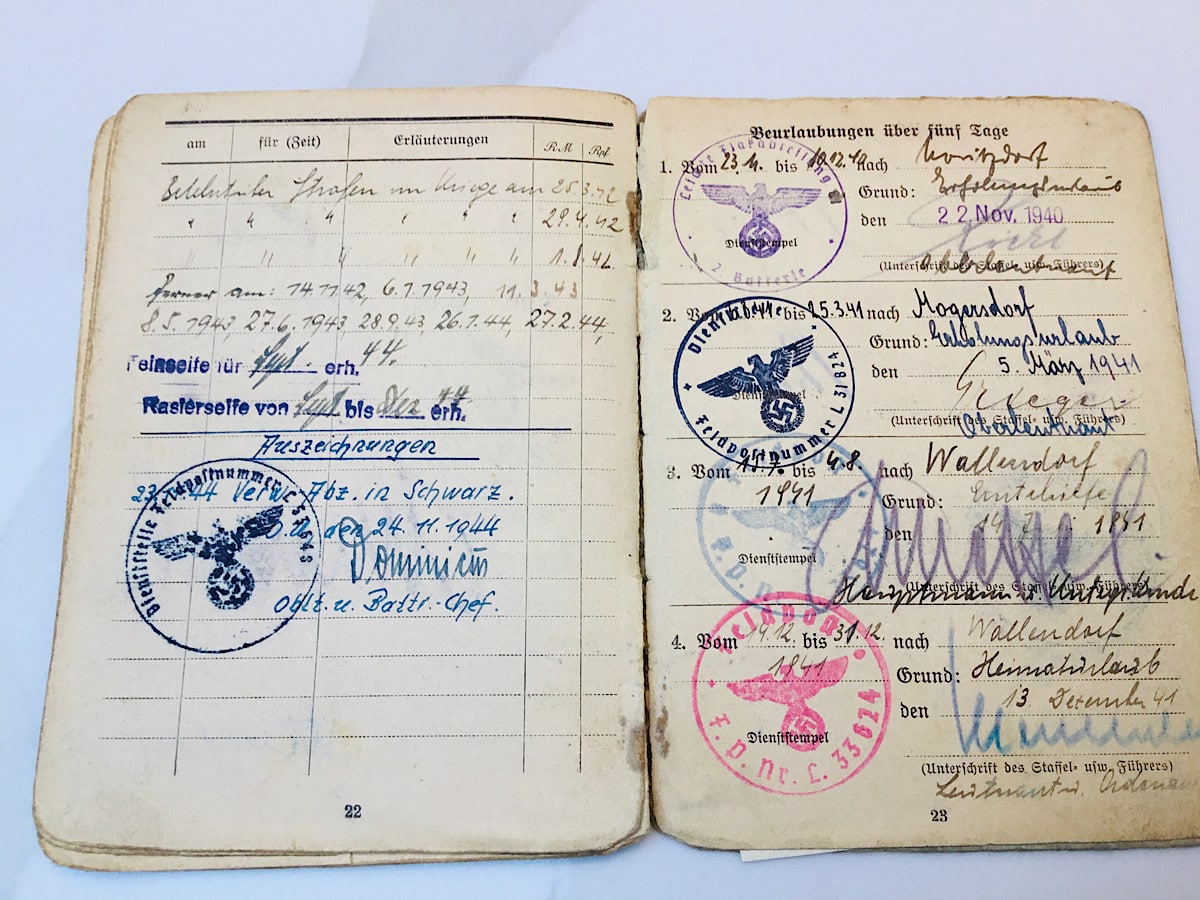 am für (Zeit) Erläuterungen RM Rpf.
Strafen im Kriege am 25.3.42
" " " " " " 29.4.42
" " " " " 1.8.42
Ferner am: 14.11.42, 6.1.1943, 11.3.43
8.5.1943, 27.6.1943, 28.9.43, 26.1.44, 27.2.44,
Feinseife für Sept. erh. 44.
Rasierseife von Sept. bis Dez 44 erh.
Auszeichnungen
44 Verw. Abz. in Schwarz.
O.U. den 24.11.1944
Dominicus
Oblt. u. Battr.-Chef.
Dienststelle Feldpostnummer L
22
Beurlaubungen über fünf Tage
1. Vom 23.11. bis 10.12.40 nach
Grund: Erholungsurlaub
den 22. Nov. 1940
(Unterschrift des Staffel- usw. Führers)
Dienststempel
2. Batterie
2. Vom bis 25.3.41 nach Mogersdorf
Grund: Erholungsurlaub
den 5. März 1941
(Unterschrift des Staffel- usw. Führers)
Oberleutnant
Dienststempel
Dienststelle Feldpostnummer L 31824
3. Vom 15.7. bis 4.8 nach Wallendorf
1941
Grund: Erntehilfe
den 14.7. 1941
Dienststempel
(Unterschrift des Staffel- usw. Führers)
Hauptmann u.
4. Vom 19.12. bis 31.12. nach Wallendorf
1941
Grund: Heimaturlaub
den 13 Dezember 41
Dienststempel
Feldpost
F. P. Nr. L. 33624
(Unterschrift des Staffel- usw. Führers)
Leutnant u.
23